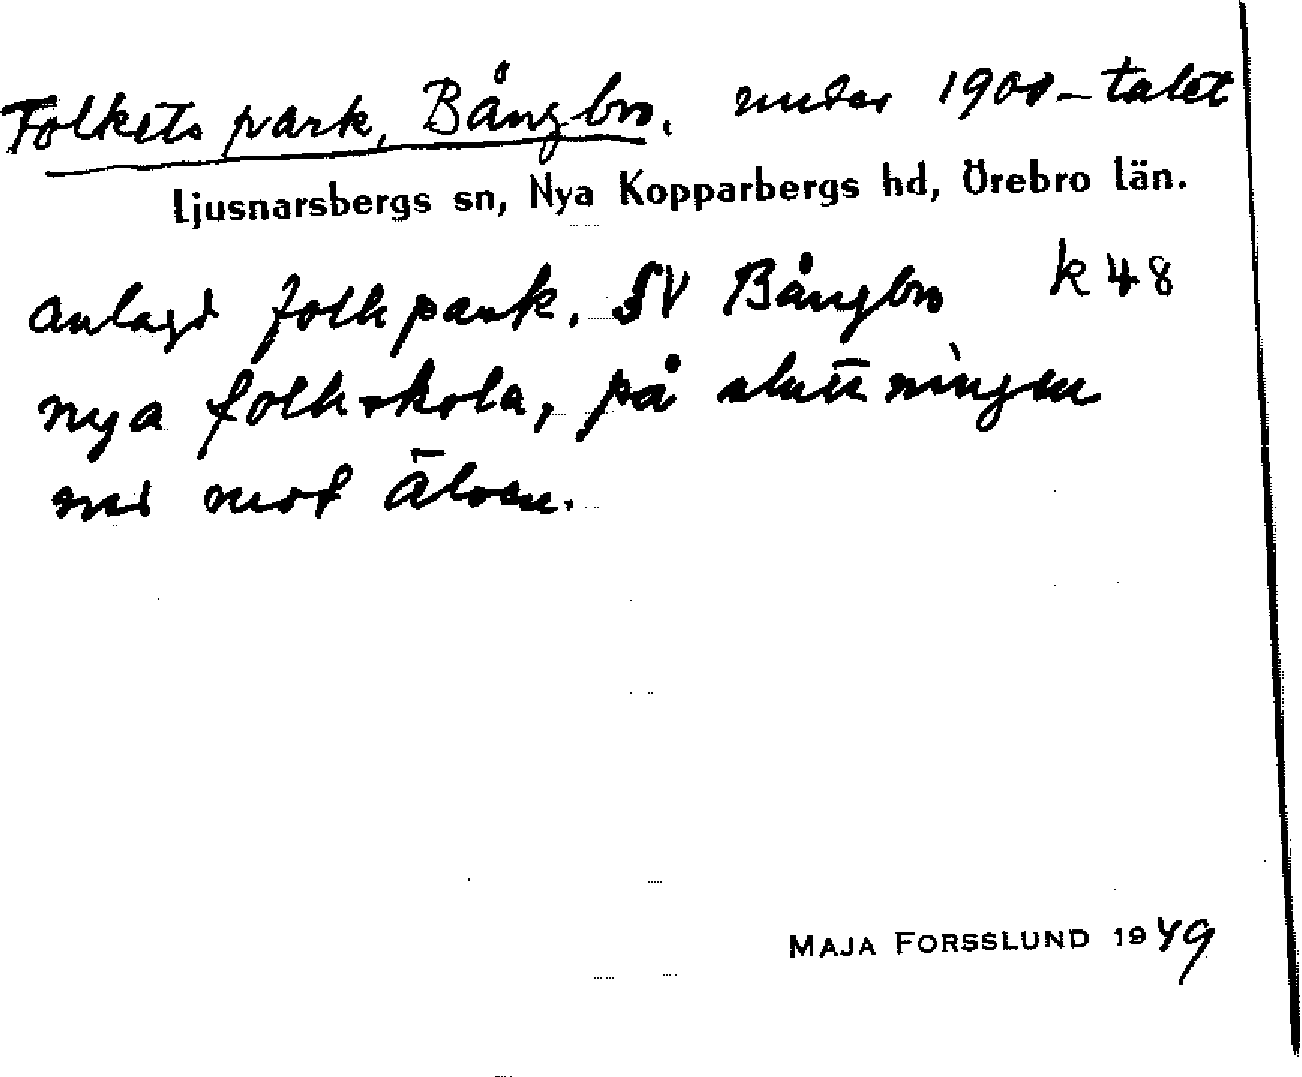 Folkets park, Bångbro. under 1900-talet
Ljusnarsbergs sn, Nya Kopparbergs hd, Örebro län.
anlagd folkpark. SV Bångbro k48
nya folkskola, på sluttningen
ned mot älven.
MAJA FORSSLUND 1949